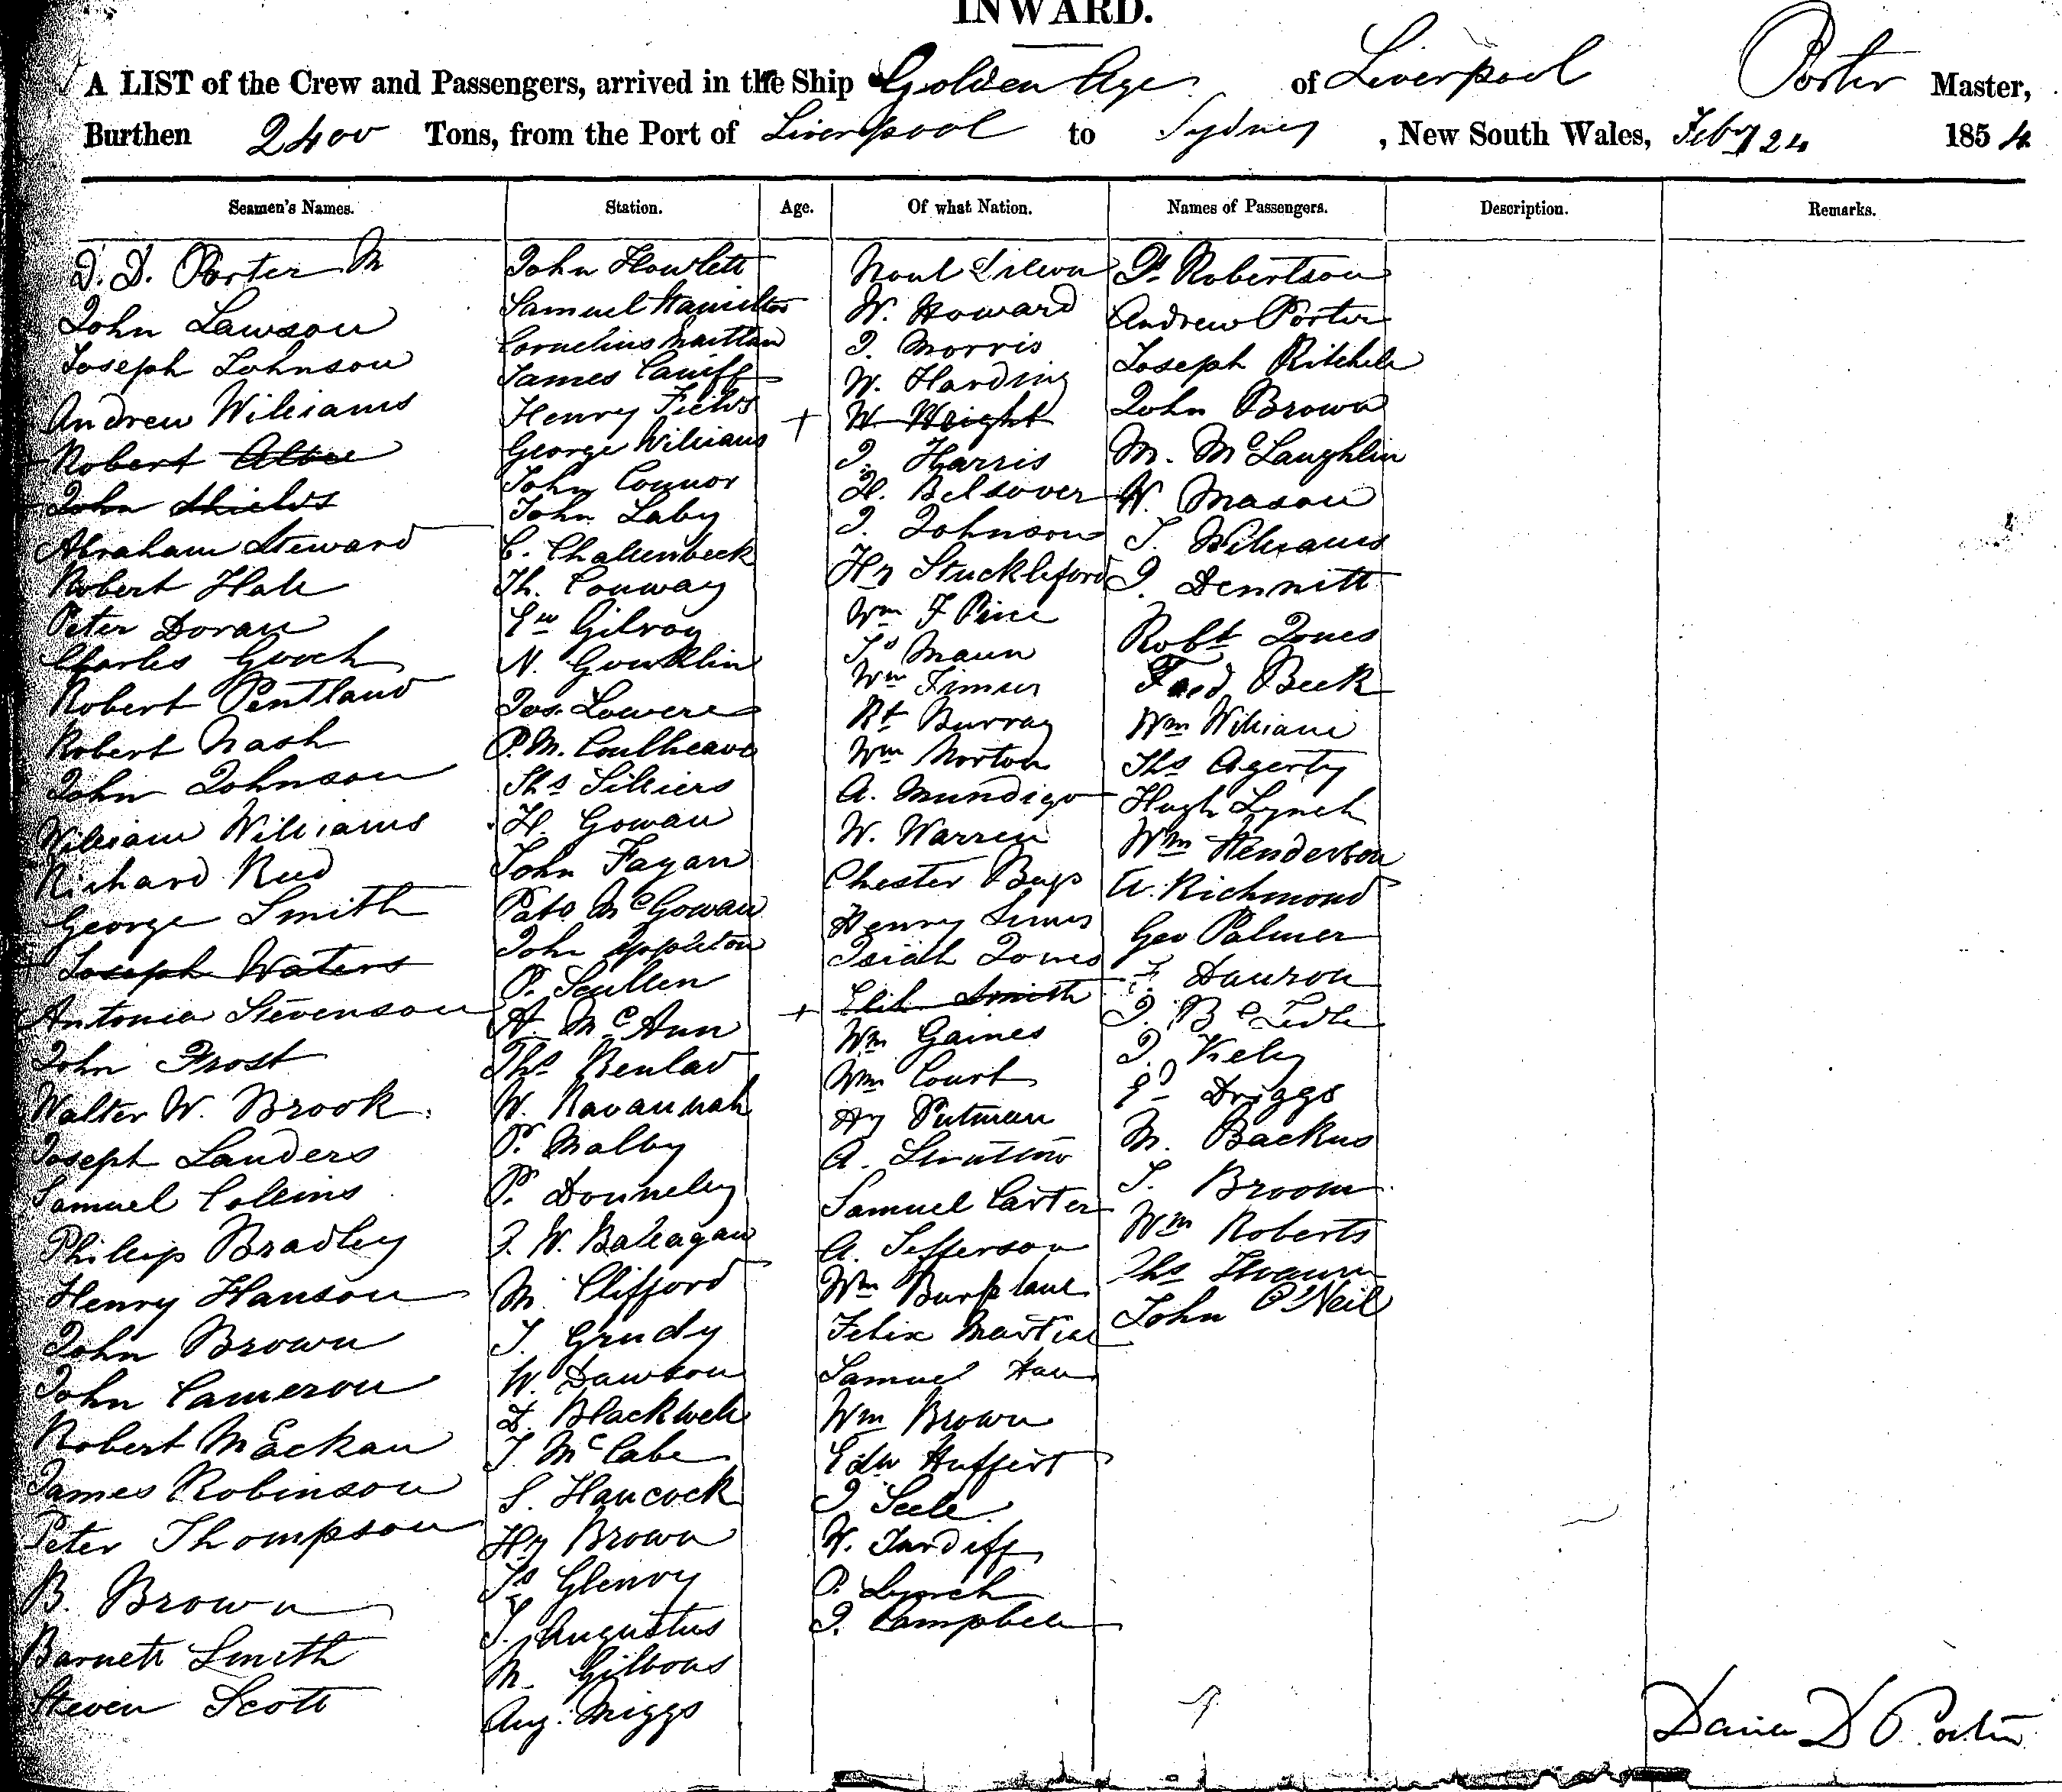 INWARD.
A LIST of the Crew and Passengers, arrived in the Ship Golden Age of Liverpool Porter Master,
Burthen 2400 Tons, from the Port of Liverpool to Sydney, New South Wales, Feby 24 1854
Seamen's Names. Station. Age. Of what Nation. Names of Passengers. Description. Remarks.
D. D. Porter M
John Lawson
Joseph Johnson
Andrew Williams
Robert
John Shields
Abraham Steward
Robert Hale
Peter Doran
Charles Gooch
Robert Pentland
Robert Nash
John Johnson
William Williams
Richard Reed
George Smith
Joseph Waters
Antonia Stevenson
John Frost
Walter W. Brook
Joseph Landers
Samuel Collins
Phillip Bradley
Henry Hanson
John Brown
John Cameron
Robert McEckan
James Robinson
Peter Thompson
B. Brown
Barnett Smith
Steven Scott
John Howlett
Samuel Hamilton
Cornelius
James Caniff
Henry Fields
George Williams
John Connor
John Laby
C. Challenbeck
Th. Conway
Gilroy
N. Goucklin
Jas. Lowere
P. M.
Ths Silliers
H. Gowan
John Fagan
Pato McGowan
John Appleton
P. Scullen
A. McAnn
Ths Benlad
W. Kavannah
P. Malby
P. Donneley
J. W. Baleagan
M. Clifford
J. Grudy
W. Dawson
Z. Blackwell
J McCabe
S. Hancock
Hy Brown
Js Glenry
J. Augustus
M. Gibbons
Aug. Miggs
W. Howard
J. Morris
W. Harding
+ W. Wright
J. Harris
H. Belsover
J. Johnson
Hy Stuckleford
Wm F Pine
Js Mann
Wm
Rt Burray
Wm Norton
A. Mundigo
W. Warren
Chester
Henry
Isiah Jones
+ Smith
Wm Gaines
Wm Court
Hy Putman
A.
Samuel Carter
A. Jefferson
Wm
Felix
Samuel
Wm Brown
Edw
J Seele
W. Tardiff
P. Lynch
J. Campbell
Robertson
Andrew Porter
Joseph Ritchele
John Brown
M. McLaughlin
W. Mason
J. Williams
J. Dennitt
Robt Jones
Fred Beck
Wm William
Ths Agerty
Hugh Lynch
Wm Henderson
A. Richmond
Geo Palmer
F. Dawson
J. B
J. Kelly
Driggs
M. Backus
J. Broom
Wm Roberts
Ths
John O'Neil
D Porter